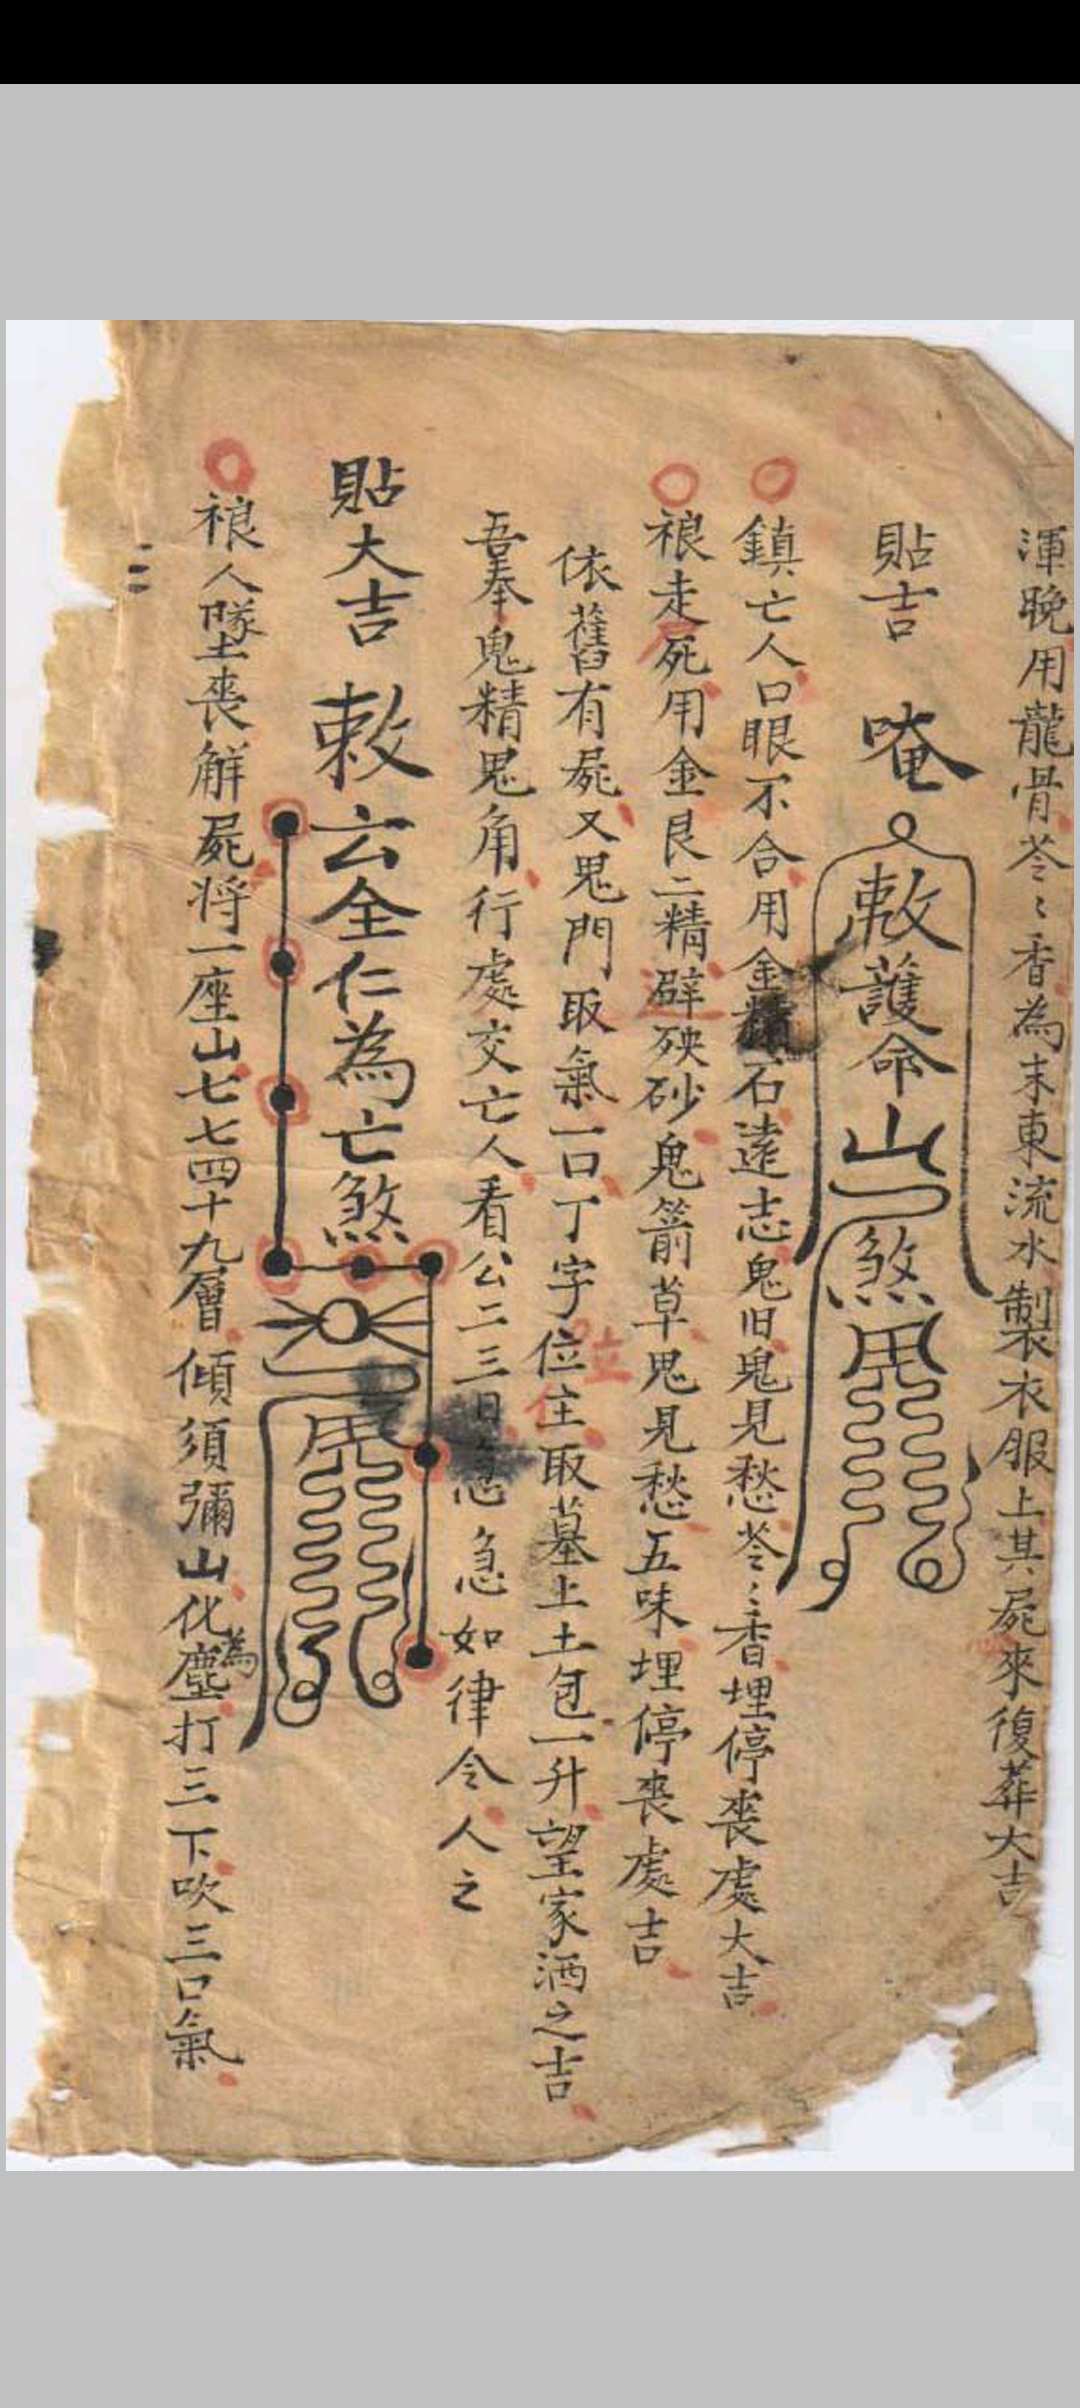 渾晚用龍骨苓〻香為末東流水製衣服上其屍來復葬大吉
貼吉
唵
敕護命山煞
鎮亡人口眼不合用金精石遠志鬼旧鬼見愁苓〻香埋停喪處大吉
走死用金艮二精避殃砂鬼箭草鬼見愁五味埋停喪處吉
依舊有屍又鬼門取氣一口丁字位主取墓上土包一升望家洒之吉
位
吾奉鬼精鬼角行處交亡人看公二三日急急如律令人之
貼大吉
敕云全仁為亡煞
人墜喪解屍將一座山七七四十九層傾須彌山化為塵打三下吹三口氣